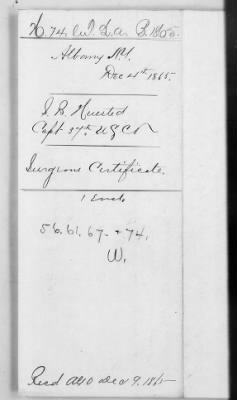 H. 74. C.T. D.A. B. 1865.
Albany N.Y.
Dec 4th 1865.
J. B. Huested
Capt 37th USCT
Surgeons Certificate.
1 Encl
56. 61. 67. + 74.
W.
Recd AGO Dec 9. 1865